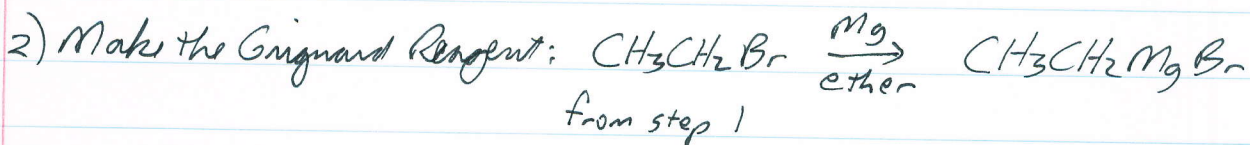 2) Make the Grignard Reagent: CH₃CH₂Br Mg→ether CH₃CH₂MgBr
from step 1